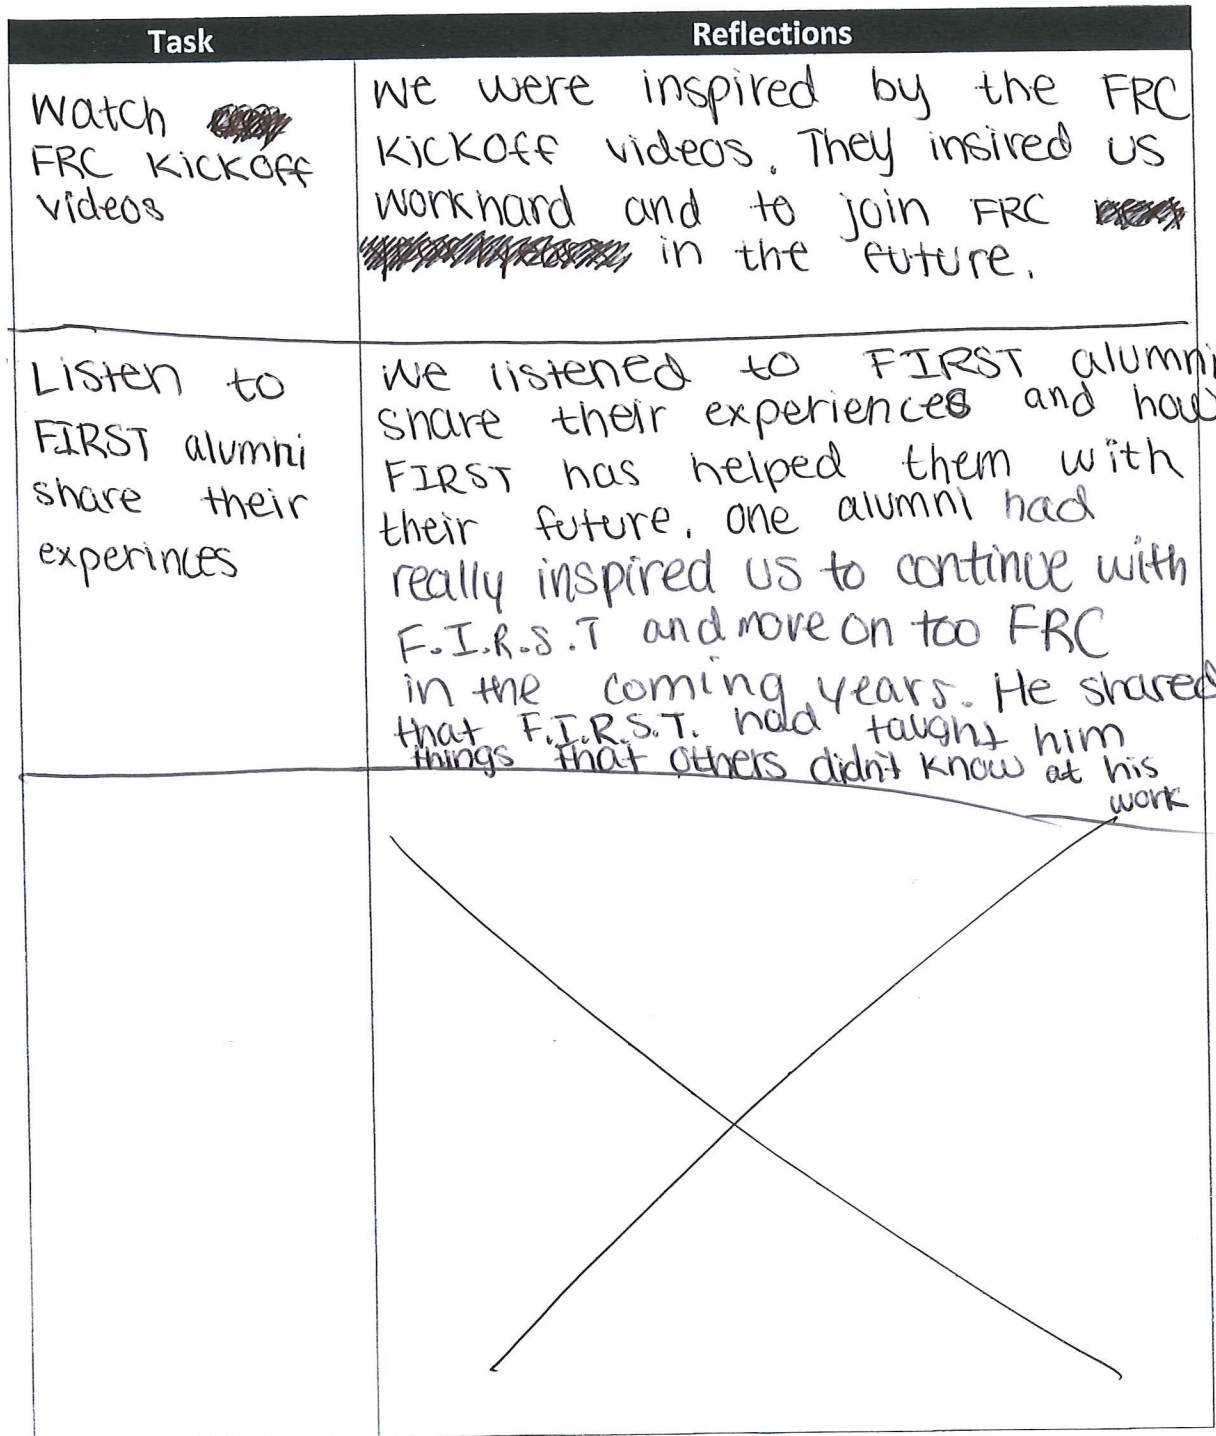 Task
Reflections
Watch
FRC Kickoff
videos
We were inspired by the FRC
Kickoff videos. They insired us
work hard and to join FRC
in the future.
Listen to
FIRST alumni
share their
experinces
We listened to FIRST alumni
share their experiences and how
FIRST has helped them with
their future. One alumni had
really inspired us to continue with
F.I.R.S.T and move on too FRC
in the coming years. He shared
that F.I.R.S.T. had taught him
things that others didn't know at his
work